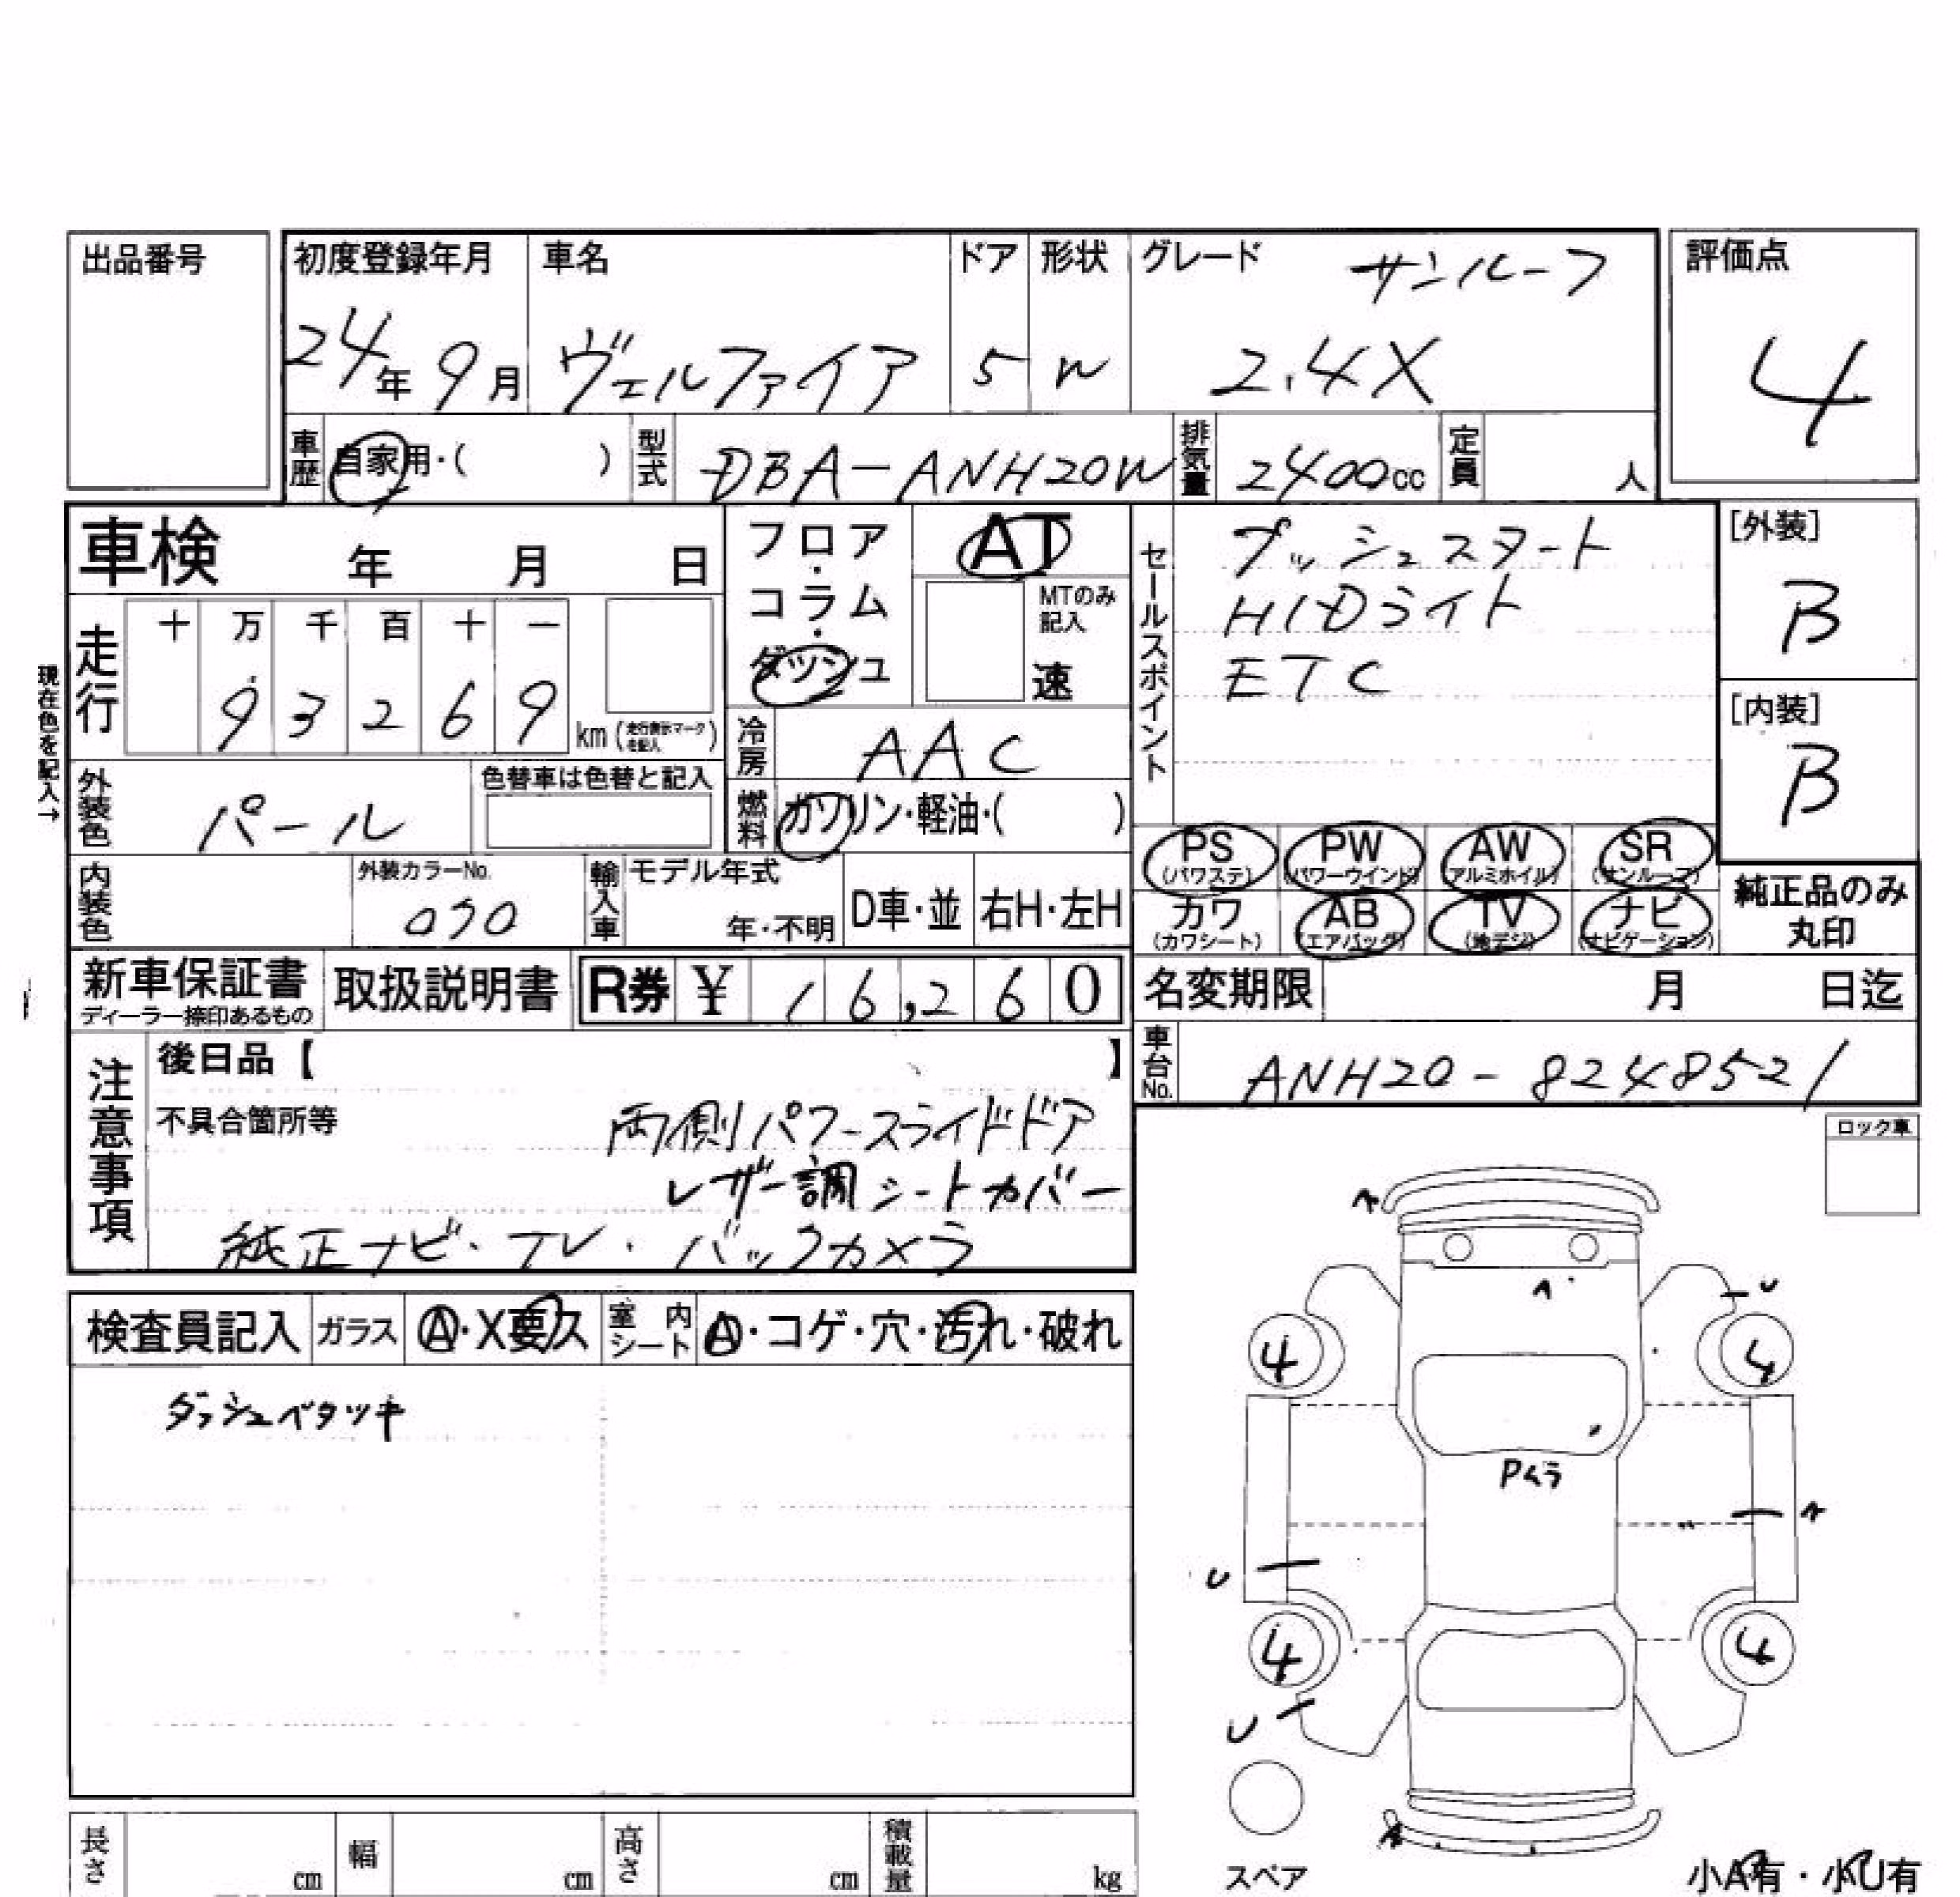 出品番号
初度登録年月 車名 ドア 形状 グレード サンルーフ 評価点
24年 9月 ヴェルファイア 5 W 2.4X 4
車歴 自家用・( ) 型式 DBA-ANH20W 排気量 2400cc 定員 人
車検 年 月 日
フロア・コラム・ダッシュ
AT
MTのみ記入
速
セールスポイント
プッシュスタート
HIDライト
ETC
[外装]
B
[内装]
B
現在色を記入→
走行 十 万 千 百 十 一
9 3 2 6 9 km (走行表示マークを記入)
冷房 AAC
外装色 パール 色替車は色替と記入
燃料 ガソリン・軽油・( )
内装色 外装カラーNo. 070 輸入車 モデル年式 年・不明 D車・並 右H・左H
PS (パワステ) PW (パワーウインド) AW (アルミホイル) SR (サンルーフ)
カワ (カワシート) AB (エアバッグ) TV (地デジ) ナビ (ナビゲーション)
純正品のみ丸印
新車保証書 ディーラー捺印あるもの 取扱説明書 R券 ¥ 16,260
名変期限 月 日迄
車台No. ANH20-8248521
注意事項
後日品【 】
不具合箇所等 両側パワースライドドア
レザー調シートカバー
純正ナビ・TV・バックカメラ
ロック車
検査員記入 ガラス A・X要ス 室内シート A・コゲ・穴・汚れ・破れ
ダッシュベタツキ
A
A
U
4 4
Pムラ
A
U
4 4
U
A
スペア
小A有・小U有
長さ cm 幅 cm 高さ cm 積載量 kg